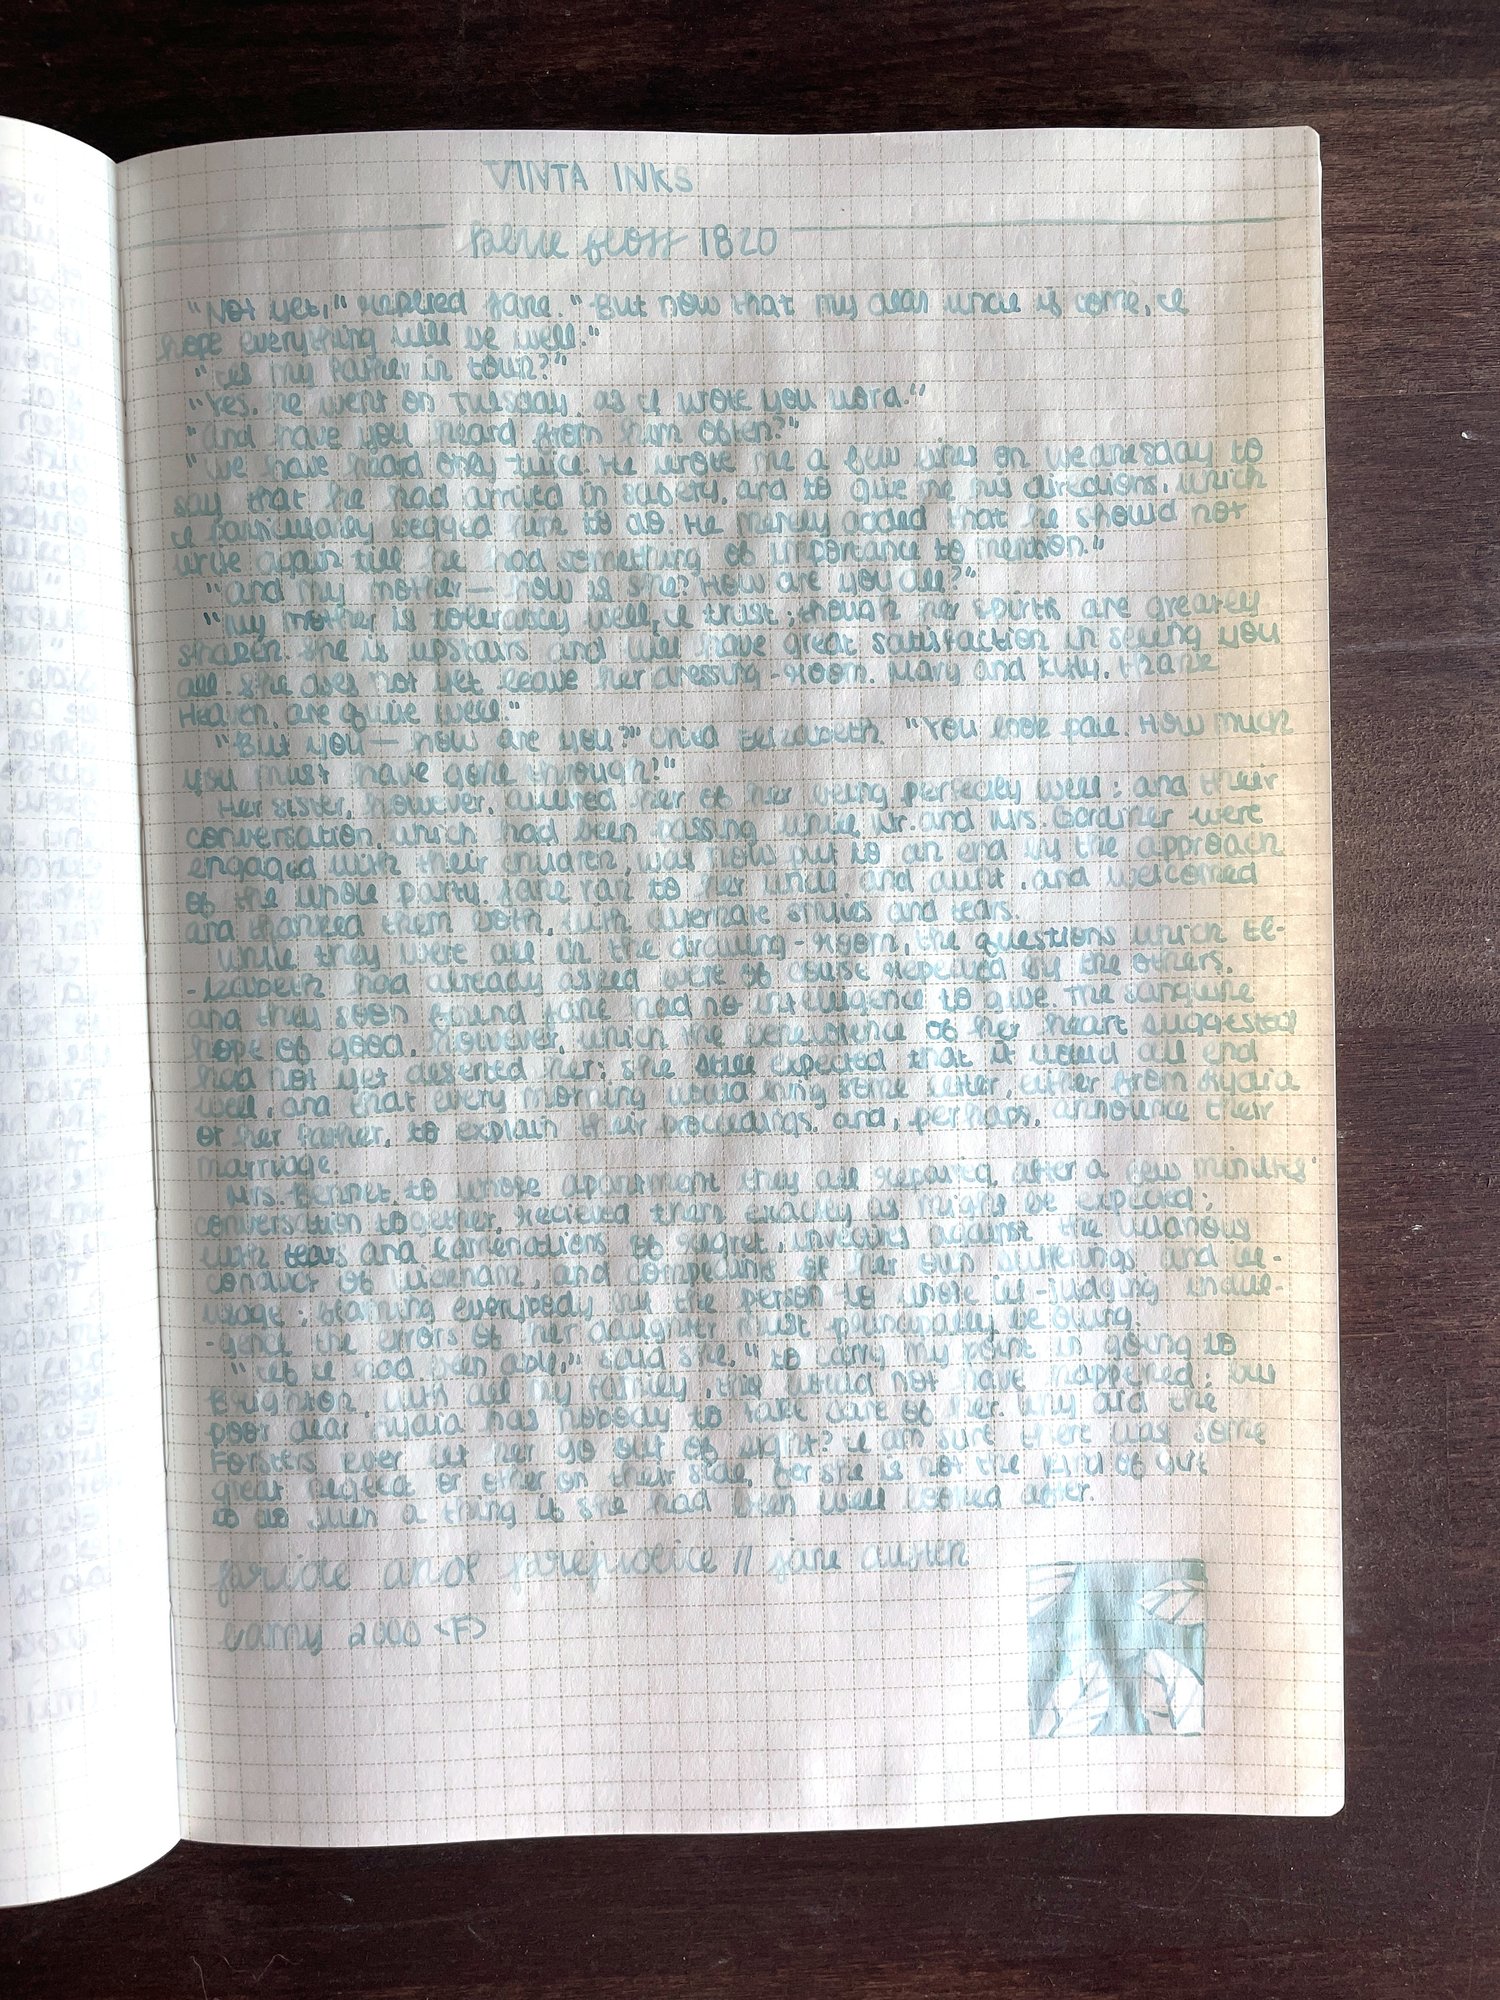 VINTA INKS
1820
"Not yet," replied Jane. "But now that my dear uncle is come, I
hope everything will be well."
"Is my father in town?"
"Yes, he went on Tuesday, as I wrote you word."
"And have you heard from him often?"
"We have heard only twice. He wrote me a few lines on Wednesday to
say that he had arrived in safety, and to give me his directions, which
I particularly begged him to do. He merely added that he should not
write again till he had something of importance to mention."
"And my mother — how is she? How are you all?"
"My mother is tolerably well, I trust; though her spirits are greatly
shaken. She is upstairs and will have great satisfaction in seeing you
all. She does not yet leave her dressing-room. Mary and Kitty, thank
Heaven, are quite well."
"But you — how are you?" cried Elizabeth. "You look pale. How much
you must have gone through!"
Her sister, however, assured her of her being perfectly well; and their
conversation, which had been passing while Mr. and Mrs. Gardiner were
engaged with their children, was now put to an end by the approach
of the whole party. Jane ran to her uncle and aunt, and welcomed
and thanked them both, with alternate smiles and tears.
While they were all in the drawing-room, the questions which El-
-izabeth had already asked were of course repeated by the others,
and they soon found Jane had no intelligence to give. The sanguine
hope of good, however, which the benevolence of her heart suggested
had not yet deserted her; she still expected that it would all end
well, and that every morning would bring some letter, either from Lydia
or her father, to explain their proceedings, and, perhaps, announce their
marriage.
Mrs. Bennet, to whose apartment they all repaired, after a few minutes'
conversation together, recieved them exactly as might be expected;
with tears and lamentations of regret, invectives against the villanous
conduct of Wickham, and complaints of her own sufferings and ill-
usage; blaming everybody but the person to whose ill-judging indul-
-gence the errors of her daughter must principally be owing.
"If I had been able," said she, "to carry my point in going to
Brighton, with all my family, this would not have happened; but
poor dear Lydia had nobody to take care of her. Why did the
Forsters ever let her go out of sight? I am sure there was some
great neglect or other on their side, for she is not the kind of girl
to do such a thing if she had been well looked after.
Pride and Prejudice // Jane Austen
Lamy 2000 <F>